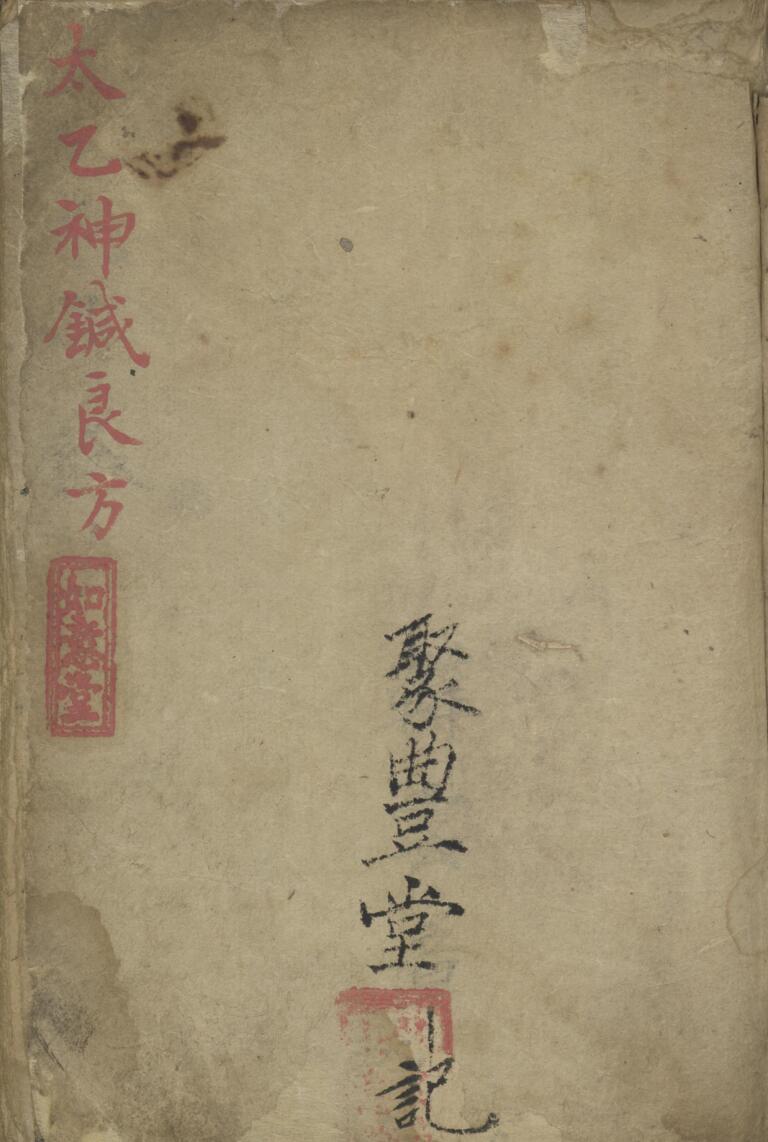 聚豊堂記
太乙神鍼良方
如意堂